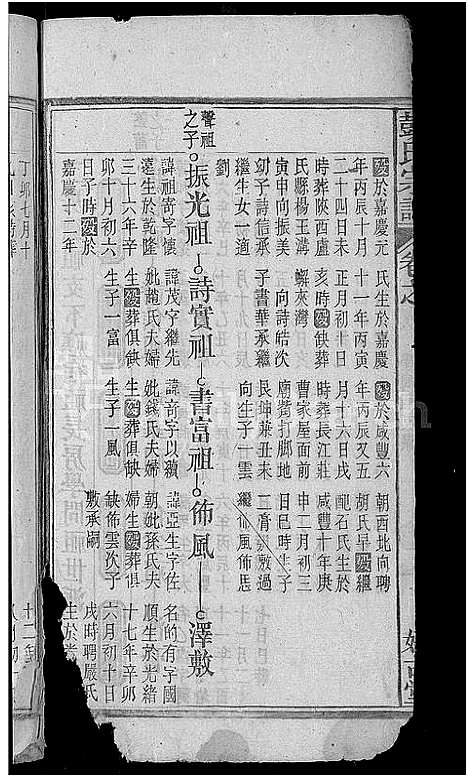 彭氏宗譜
歿於嘉慶元 氏生於嘉慶 歿於咸豐六 朝西北向聘
年丙辰十月 十一年丙寅 年丙辰又五 胡氏早歿繼
二十四日未 正月初十日 月十六日戌 配石氏生於
時葬陝西盧 亥時歿俱缺葬 時葬長江莊 咸豐十年庚
氏縣楊王溝 蠏來灣 曹家屋面前 申二月初三
寅申向振美 向詩皓次 廟嘴打脚地 日巳時生子
幼子詩信承 子書華承繼 艮坤兼丑未 敷過
繼生女一適 向生子一雲 繼 佈風佈恩
劉
聲祖之子 振光祖 詩實祖 書富祖 佈風 澤敷
諱祖寄字懷 諱茂字繼先 諱奇字以續 諱亞生字佐 名的有字國
遠生於乾隆 妣龍氏夫婦 妣錢氏夫婦 朝妣孫氏夫 順生於光緒
三十六年辛 生歿葬俱缺 生歿葬俱缺 婦生歿葬俱 十七年辛卯
卯十月初六 生子一富 生子一風 缺佈雲次子 六月初十日
日子時歿於 敷承嗣 戌時聘嚴氏
嘉慶十二年 生於
丁卯七月十
十二年